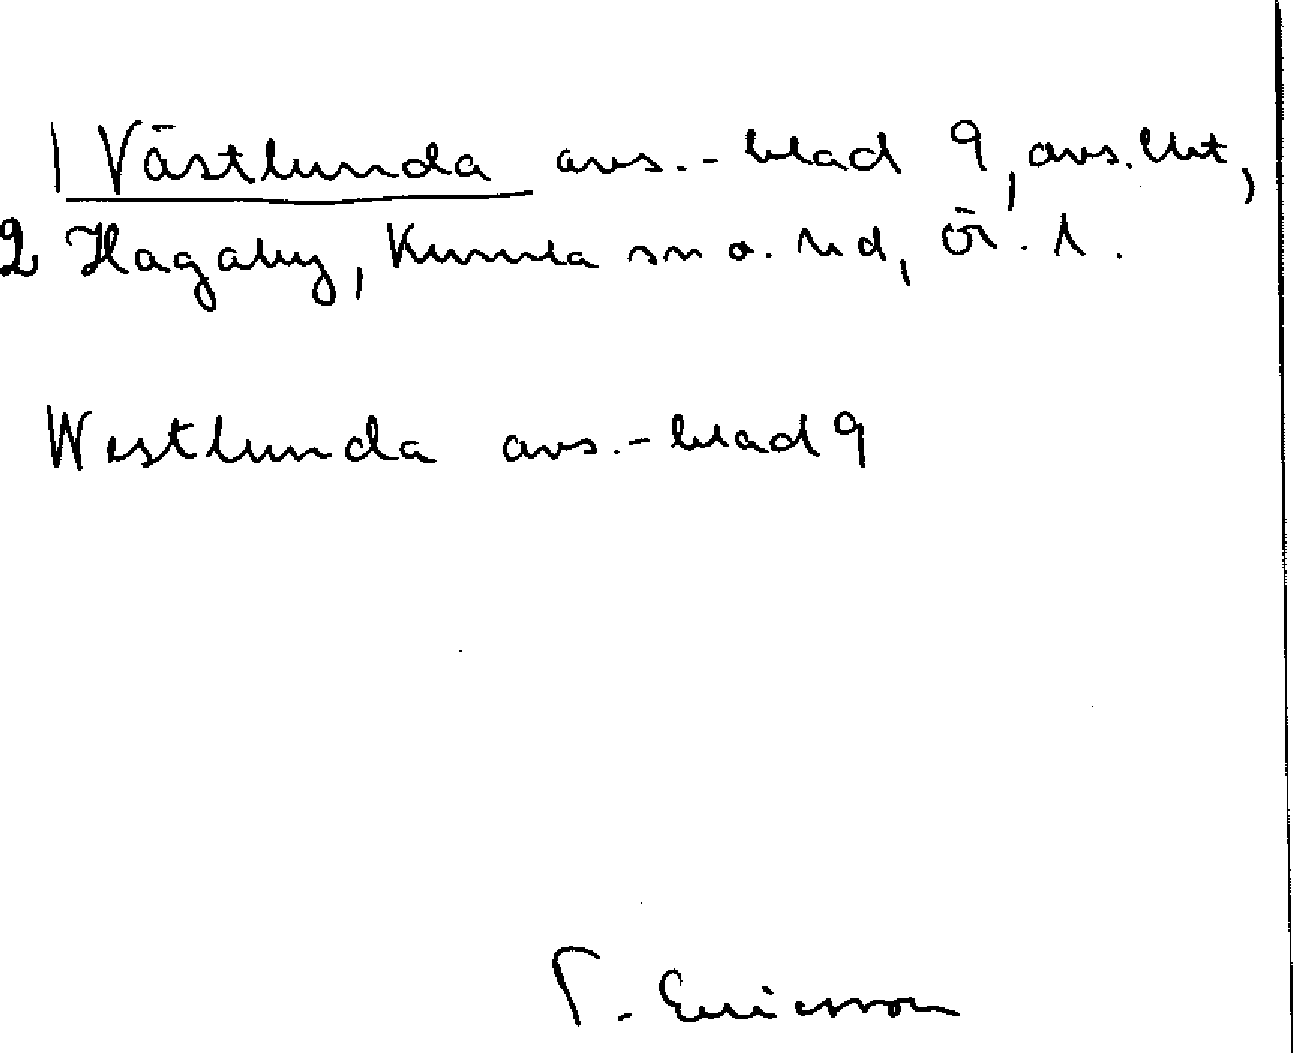 1 Västlunda avs.-blad 9, avs. Utt,
2 Hagaby, Kumla sn o. hd, Ör. l.
Westlunda avs.-blad 9
T. Ericsson